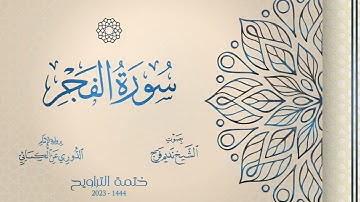 سُورَةُ الفَجْرِ
بصوت
الشيخ نديم فرج
برواية
الدُّوري عَنِ الكسَائي
ختمة التراويح
1444 - 2023